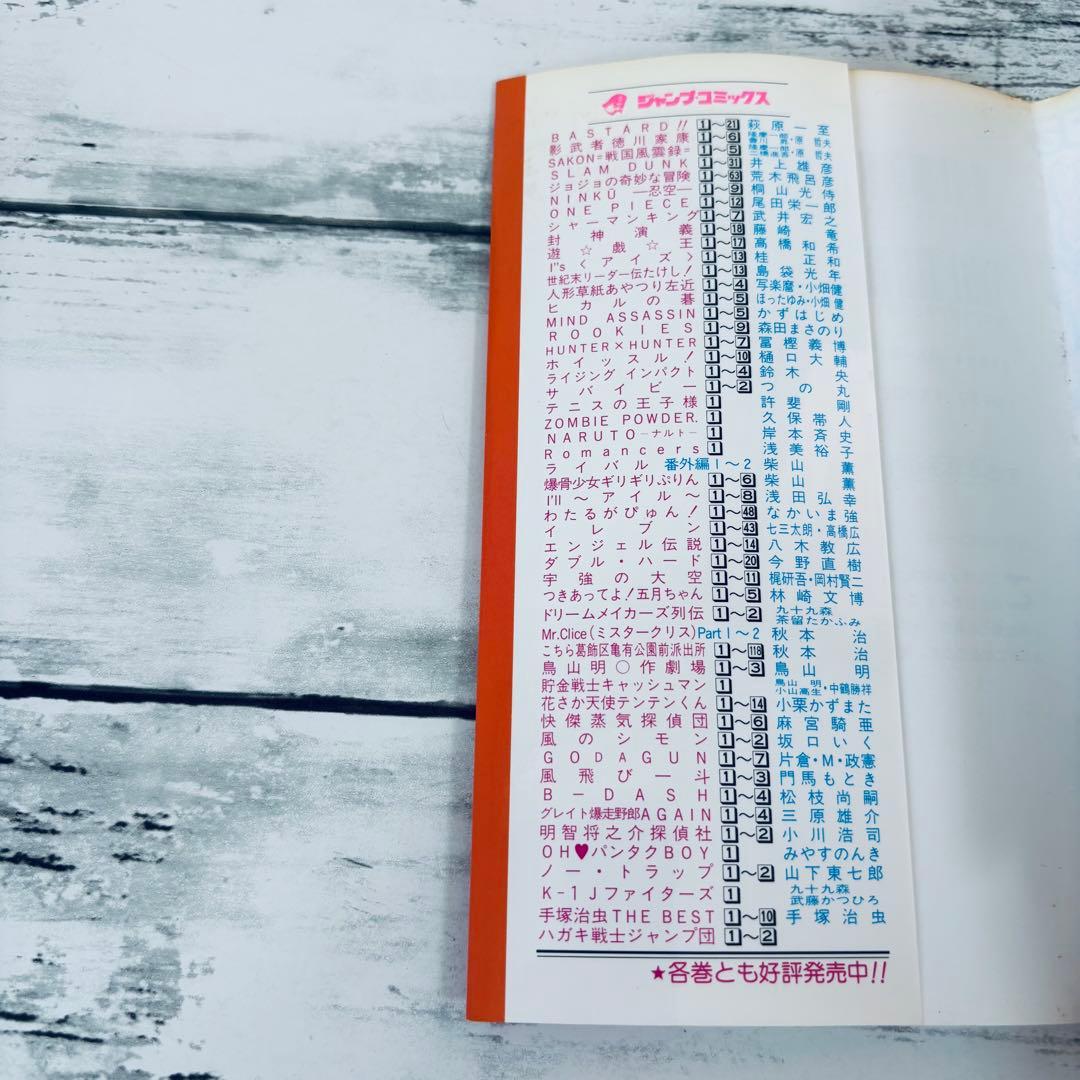 ジャンプ・コミックス
BASTARD!! 1～21 萩原一至
影武者徳川家康 1～6 隆慶一郎・原哲夫
SAKON=戦国風雲録= 1～5 隆慶一郎・原哲夫
SLAM DUNK 1～31 井上雄彦
ジョジョの奇妙な冒険 1～63 荒木飛呂彦
NINKŪ―忍空― 1～9 桐山光侍
ONE PIECE 1～12 尾田栄一郎
シャーマンキング 1～7 武井宏之
封神演義 1～18 藤崎竜
遊☆戯☆王 1～17 高橋和希
I"s〈アイズ〉 1～13 桂正和
世紀末リーダー伝たけし! 1～13 島袋光年
人形草紙あやつり左近 1～4 写楽麿・小畑健
ヒカルの碁 1～5 ほったゆみ・小畑健
MIND ASSASSIN 1～5 かずはじめ
ROOKIES 1～9 森田まさのり
HUNTER×HUNTER 1～7 冨樫義博
ホイッスル! 1～10 樋口大輔
ライジング インパクト 1～4 鈴木央
サバイビー 1～2 つの丸
テニスの王子様 1 許斐剛
ZOMBIE POWDER. 1 久保帯人
NARUTO―ナルト― 1 岸本斉史
Romancers 1 浅美裕子
ライバル 番外編1～2 柴山薫
爆骨少女ギリギリぷりん 1～6 柴山薫
I'll～アイル～ 1～8 浅田弘幸
わたるがぴゅん! 1～48 なかいま強
イレブン 1～43 七三太朗・高橋広
エンジェル伝説 1～14 八木教広
ダブル・ハード 1～20 今野直樹
宇強の大空 1～11 梶研吾・岡村賢二
つきあってよ!五月ちゃん 1～5 林崎文博
ドリームメイカーズ列伝 1～2 九十九森 茶留たかふみ
Mr.Clice(ミスタークリス)Part1～2 秋本治
こちら葛飾区亀有公園前派出所 1～118 秋本治
鳥山明○作劇場 1～3 鳥山明
貯金戦士キャッシュマン 1 鳥山明 小山高生・中鶴勝祥
花さか天使テンテンくん 1～14 小栗かずまた
快傑蒸気探偵団 1～6 麻宮騎亜
風のシモン 1～2 坂口いく
GODAGUN 1～7 片倉・M・政憲
風飛び一斗 1～3 門馬もとき
B-DASH 1～4 松枝尚嗣
グレイト爆走野郎AGAIN 1～4 三原雄介
明智将之介探偵社 1～2 小川浩司
OH♥パンタクBOY 1 みやすのんき
ノー・トラップ 1～2 山下東七郎
K-1Jファイターズ 1 九十九森 武藤かつひろ
手塚治虫THE BEST 1～10 手塚治虫
ハガキ戦士ジャンプ団 1～2
★各巻とも好評発売中!!